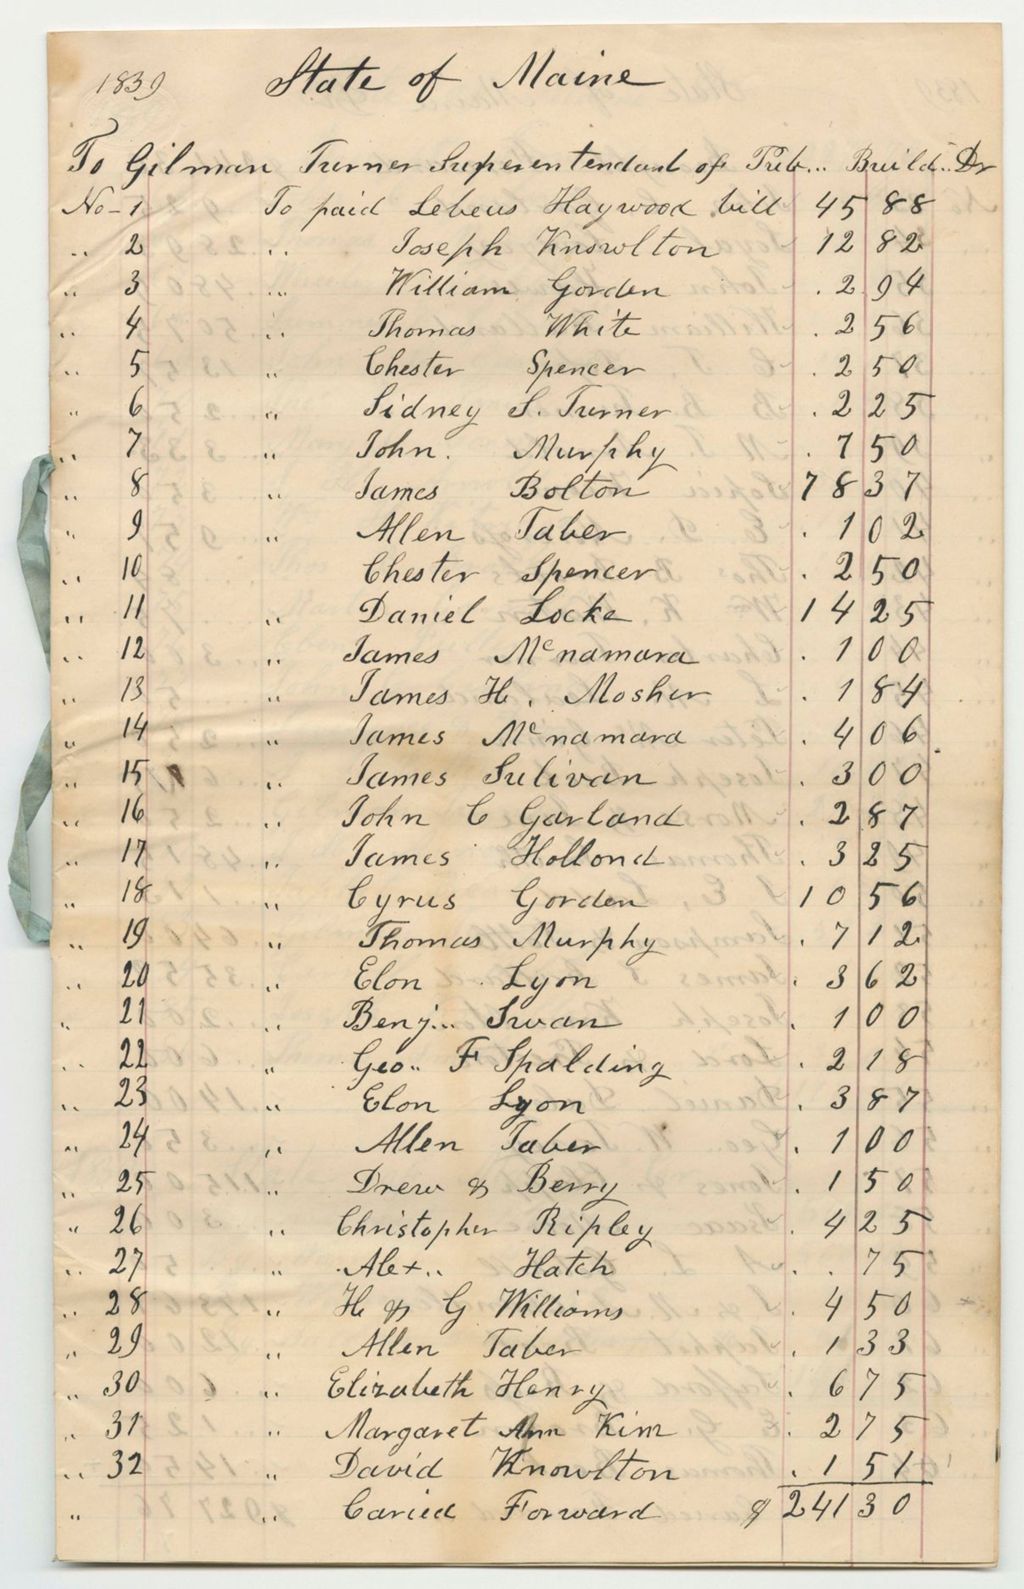 1839 State of Maine
To Gilman Turner Superentendant of Pub... Build.. Dr
No-1 To paid Lebeus Haywood bill 45 88
.. 2 .. Joseph Knowlton 12 82
.. 3 .. William Gorden . 2 94
.. 4 .. Thomas White . 2 56
.. 5 .. Chester Spencer . 2 50
.. 6 .. Sidney S. Turner . 2 25
.. 7 .. John. Murphy . 7 50
.. 8 .. James Bolton 78 37
.. 9 .. Allen Taber . 1 02
.. 10 .. Chester Spencer . 2 50
.. 11 .. Daniel Locke 14 25
.. 12 .. James Mcnamara . 1 00
.. 13 .. James H. Mosher . 1 84
.. 14 .. James Mcnamara . 4 06
.. 15 .. James Sulivan . 3 00
.. 16 .. John C Garland . 2 87
.. 17 .. James Hollond . 3 25
.. 18 .. Cyrus Gorden 10 56
.. 19 .. Thomas Murphy . 7 12
.. 20 .. Elon Lyon . 3 62
.. 21 .. Benj... Swan . 1 00
.. 22 .. Geo.. F Spalding . 2 18
.. 23 .. Elon Lyon . 3 87
.. 24 .. Allen Taber . 1 00
.. 25 .. Drew & Berry . 1 50
.. 26 .. Christopher Ripley . 4 25
.. 27 .. Alex.. Hatch . . 75
.. 28 .. H & G Williams . 4 50
.. 29 .. Allen Taber . 1 33
.. 30 .. Elizabeth Henry . 6 75
.. 31 .. Margaret Ann Kim . 2 75
.. 32 .. David Knowlton . 1 51
.. .. Caried Forward $ 241 30